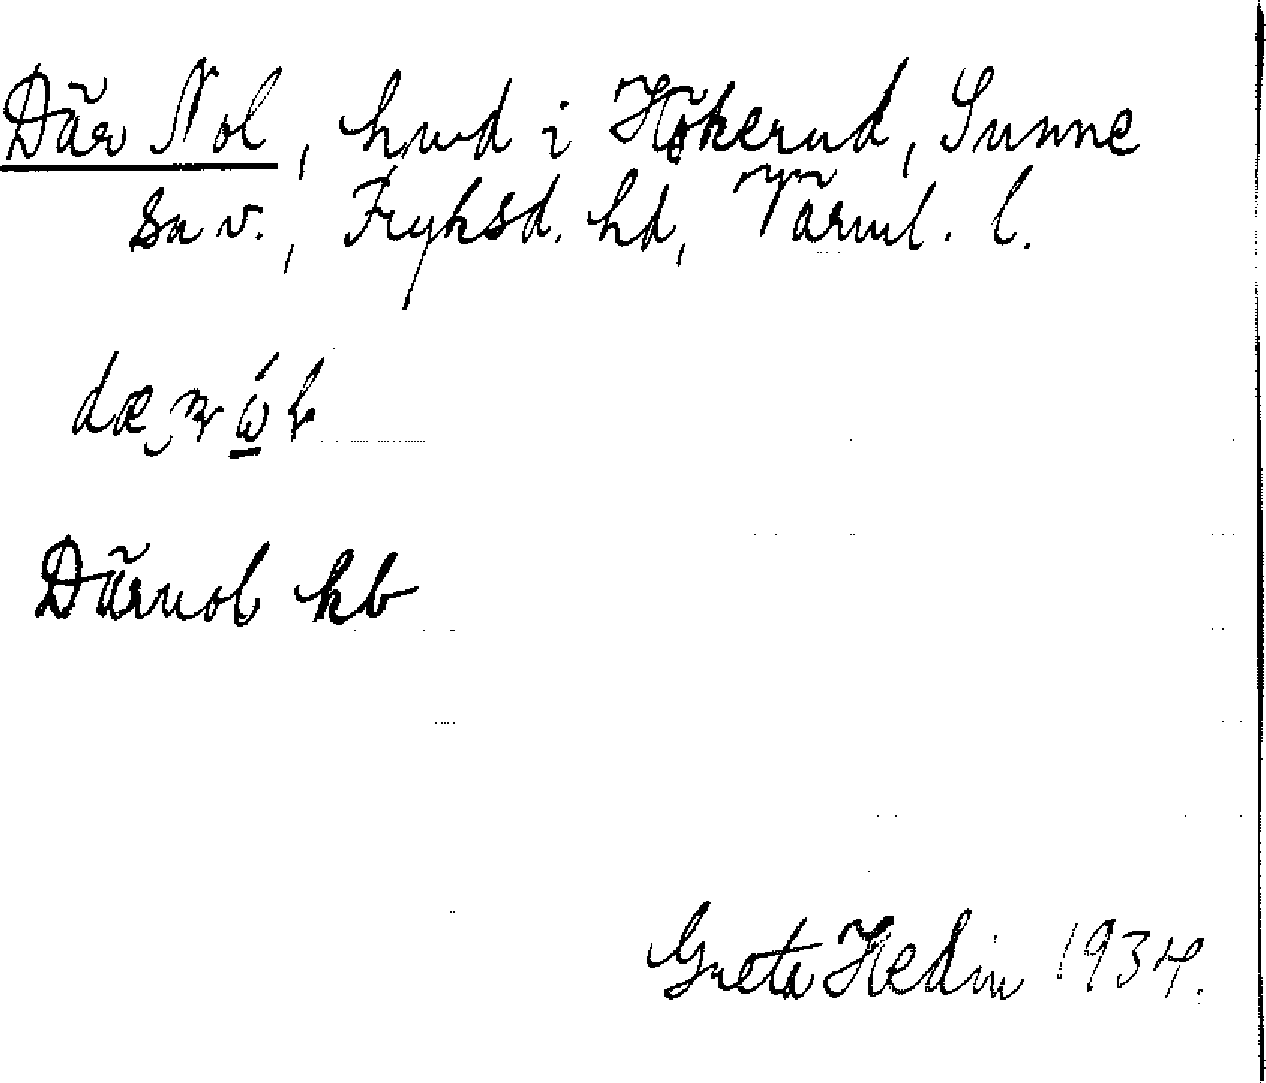 Där Nol, hmd i Hökerud, Sunne
sn v., Fryksd. hd, Värml. l.
Därnol kb
Greta Hedin 1934.